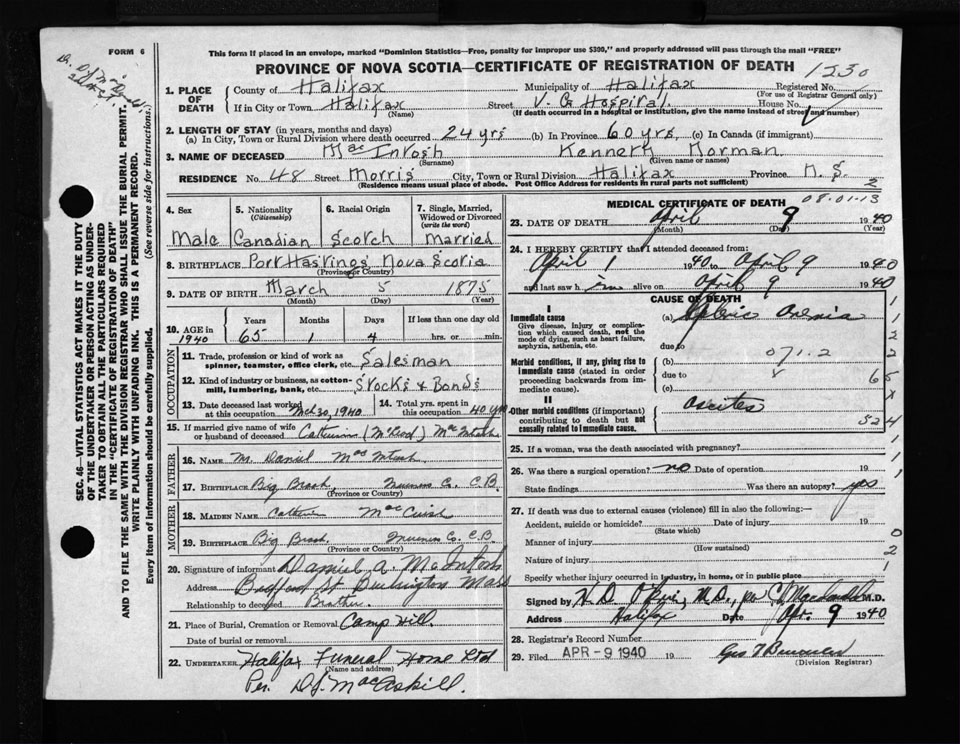 FORM 6
This form if placed in an envelope, marked "Dominion Statistics—Free, penalty for improper use $300," and properly addressed will pass through the mail "FREE"
PROVINCE OF NOVA SCOTIA—CERTIFICATE OF REGISTRATION OF DEATH
1230
1. PLACE OF DEATH
County of Halifax Municipality of Halifax Registered No.
(For use of Registrar General only)
If in City or Town Halifax Street V. G Hospital. House No.
(Name) (If death occurred in a hospital or institution, give the name instead of street and number)
2. LENGTH OF STAY (in years, months and days)
(a) In City, Town or Rural Division where death occurred 24 yrs (b) In Province 60 yrs, (c) In Canada (if immigrant)
3. NAME OF DECEASED MacIntosh Kenneth Norman
(Surname) (Given name or names)
RESIDENCE No. 48 Street Morris City, Town or Rural Division Halifax Province N. S.
(Residence means usual place of abode. Post Office Address for residents in rural parts not sufficient)
2
08-01-13
4. Sex
Male
5. Nationality (Citizenship)
Canadian
6. Racial Origin
Scotch
7. Single, Married, Widowed or Divorced (write the word)
Married
8. BIRTHPLACE Port Hastings Nova Scotia
(Province or Country)
9. DATE OF BIRTH March 5 1875
(Month) (Day) (Year)
10. AGE in 1940
Years Months Days If less than one day old
65 1 4 hrs. or min.
OCCUPATION
11. Trade, profession or kind of work as spinner, teamster, office clerk, etc. Salesman
12. Kind of industry or business, as cotton-mill, lumbering, bank, etc. Stocks & Bonds
13. Date deceased last worked at this occupation Mch 30, 1940
14. Total yrs. spent in this occupation 40 yrs
15. If married give name of wife or husband of deceased Catherine (McLeod) MacIntosh
FATHER
16. NAME M. Daniel MacIntosh
17. BIRTHPLACE Big Brook, Inverness Co. C.B.
(Province or Country)
MOTHER
18. MAIDEN NAME Catherine MacCuish
19. BIRTHPLACE Big Brook. Inverness Co. C.B.
(Province or Country)
20. Signature of informant Daniel A. McIntosh
Address Bedford St Burlington Mass
Relationship to deceased Brother.
21. Place of Burial, Cremation or Removal Camp Hill.
Date of burial or removal
22. UNDERTAKER Halifax Funeral Home Ltd
(Name and address)
Per. D.J. MacAskill.
MEDICAL CERTIFICATE OF DEATH
23. DATE OF DEATH April 9 1940
(Month) (Day) (Year)
24. I HEREBY CERTIFY that I attended deceased from:
April 1 1940 to April 9 1940
and last saw him alive on April 9 1940
CAUSE OF DEATH
I
Immediate cause (a)
Give disease, injury or complication which caused death, not the mode of dying, such as heart failure, asphyxia, asthenia, etc.
due to
Morbid conditions, if any, giving rise to immediate cause (stated in order proceeding backwards from immediate cause).
(b) 071.2
due to
(c)
II
Other morbid conditions (if important) contributing to death but not causally related to immediate cause.
Ascites
524
25. If a woman, was the death associated with pregnancy?
26. Was there a surgical operation? no Date of operation 19
State findings Was there an autopsy? yes
27. If death was due to external causes (violence) fill in also the following:—
Accident, suicide or homicide? Date of injury 19
(State which)
Manner of injury
(How sustained)
Nature of injury
Specify whether injury occurred in industry, in home, or in public place
Signed by M.D.
Address Halifax Date Apr. 9 1940
28. Registrar's Record Number
29. Filed APR - 9 1940 19
(Division Registrar)
SEC. 46—VITAL STATISTICS ACT MAKES IT THE DUTY OF THE UNDERTAKER OR PERSON ACTING AS UNDERTAKER TO OBTAIN ALL THE PARTICULARS REQUIRED IN THE "CERTIFICATE OF REGISTRATION OF DEATH" AND TO FILE THE SAME WITH THE DIVISION REGISTRAR WHO SHALL ISSUE THE BURIAL PERMIT.
WRITE PLAINLY WITH UNFADING INK. THIS IS A PERMANENT RECORD.
Every item of information should be carefully supplied. (See reverse side for instructions.)